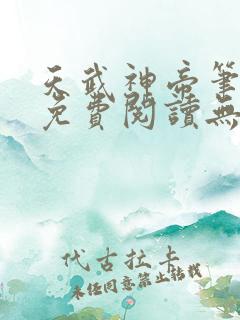 天武神帝筆
免費閱讀無
代古拉卡
未经同意禁止转载